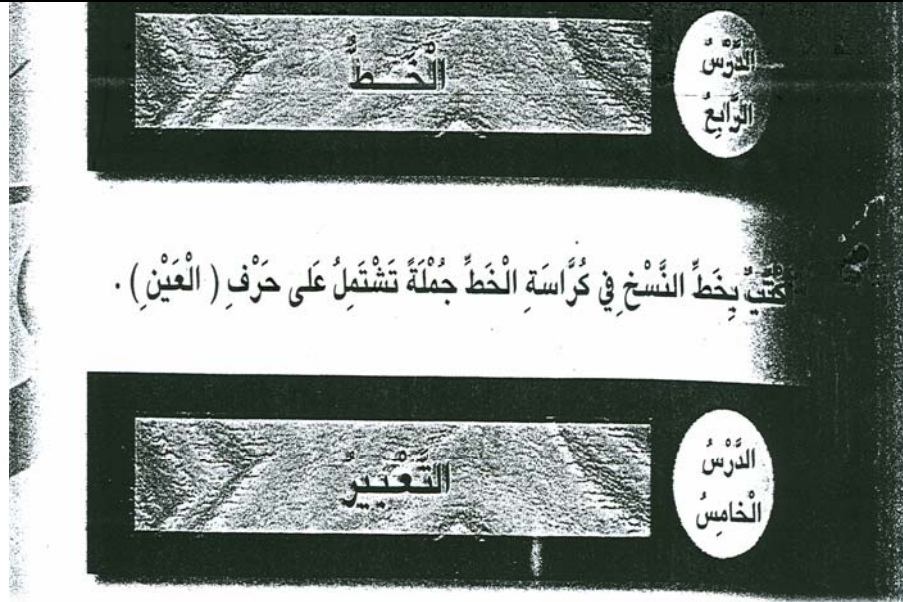 الدَّرْسُ
الرَّابِعُ
الْخَـطُّ
بِخَطِّ النَّسْخِ فِي كُرَّاسَةِ الْخَطِّ جُمْلَةً تَشْتَمِلُ عَلى حَرْفِ ( الْعَيْنِ ) .
الدَّرْسُ
الْخامِسُ
التَّعْبِيرُ